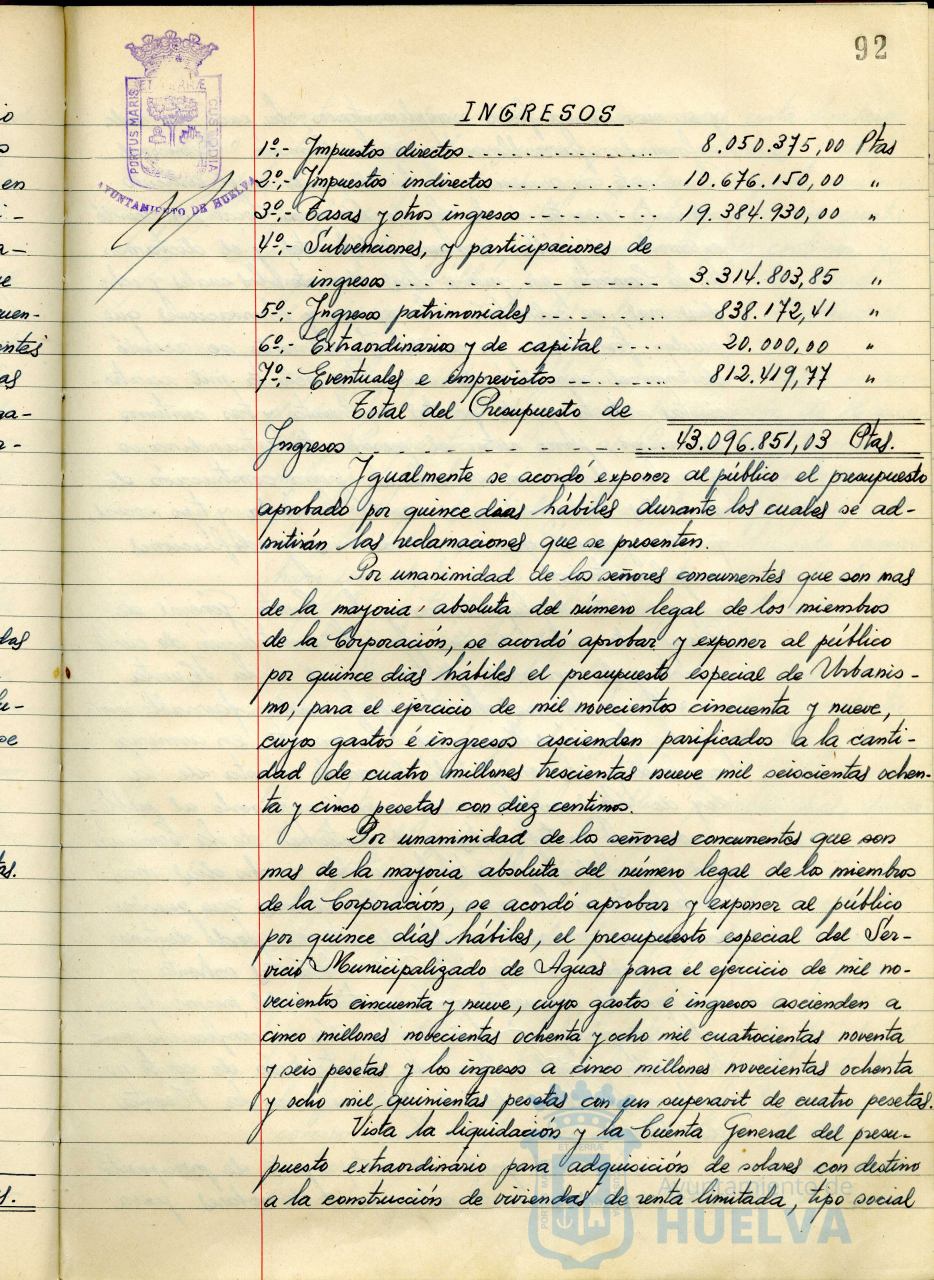 92
PORTUS MARIS
ET TERRÆ
CUSTODIA
AYUNTAMIENTO DE HUELVA
INGRESOS
1º.- Impuestos directos.............. 8.050.375,00 Ptas
2º.- Impuestos indirectos .......... 10.676.150,00 "
3º.- Tasas y otros ingresos -------- 19.384.930,00 "
4º.- Subvenciones, y participaciones de
ingresos ............... 3.314.803,85 "
5º.- Ingresos patrimoniales ........ 838.172,41 "
6º.- Extraordinarios y de capital .... 20.000,00 "
7º.- Eventuales e imprevistos ....... 812.419,77 "
Total del Presupuesto de
Ingresos ................... 43.096.851,03 Ptas.
Igualmente se acordó exponer al público el presupuesto
aprobado por quince dias hábiles durante los cuales se ad-
mitirán las reclamaciones que se presenten.
Por unanimidad de los señores concurrentes que son mas
de la mayoria absoluta del número legal de los miembros
de la Corporación, se acordó aprobar y exponer al público
por quince dias hábiles el presupuesto especial de Urbanis-
mo, para el ejercicio de mil novecientos cincuenta y nueve,
cuyos gastos é ingresos ascienden parificados a la canti-
dad de cuatro millones trescientas nueve mil seiscientas ochen-
ta y cinco pesetas con diez centimos.
Por unanimidad de los señores concurrentes que son
mas de la mayoria absoluta del número legal de los miembros
de la Corporación, se acordó aprobar y exponer al público
por quince días hábiles, el presupuesto especial del Ser-
vicio Municipalizado de Aguas para el ejercicio de mil no-
vecientos cincuenta y nueve, cuyos gastos é ingresos ascienden a
cinco millones novecientas ochenta y ocho mil cuatrocientas noventa
y seis pesetas y los ingresos a cinco millones novecientas ochenta
y ocho mil quinientas pesetas con un superavit de cuatro pesetas.
Vista la liquidación y la Cuenta General del presu-
puesto extraordinario para adquisición de solares con destino
a la construcción de viviendas de renta limitada, tipo social
Ayuntamiento de
HUELVA